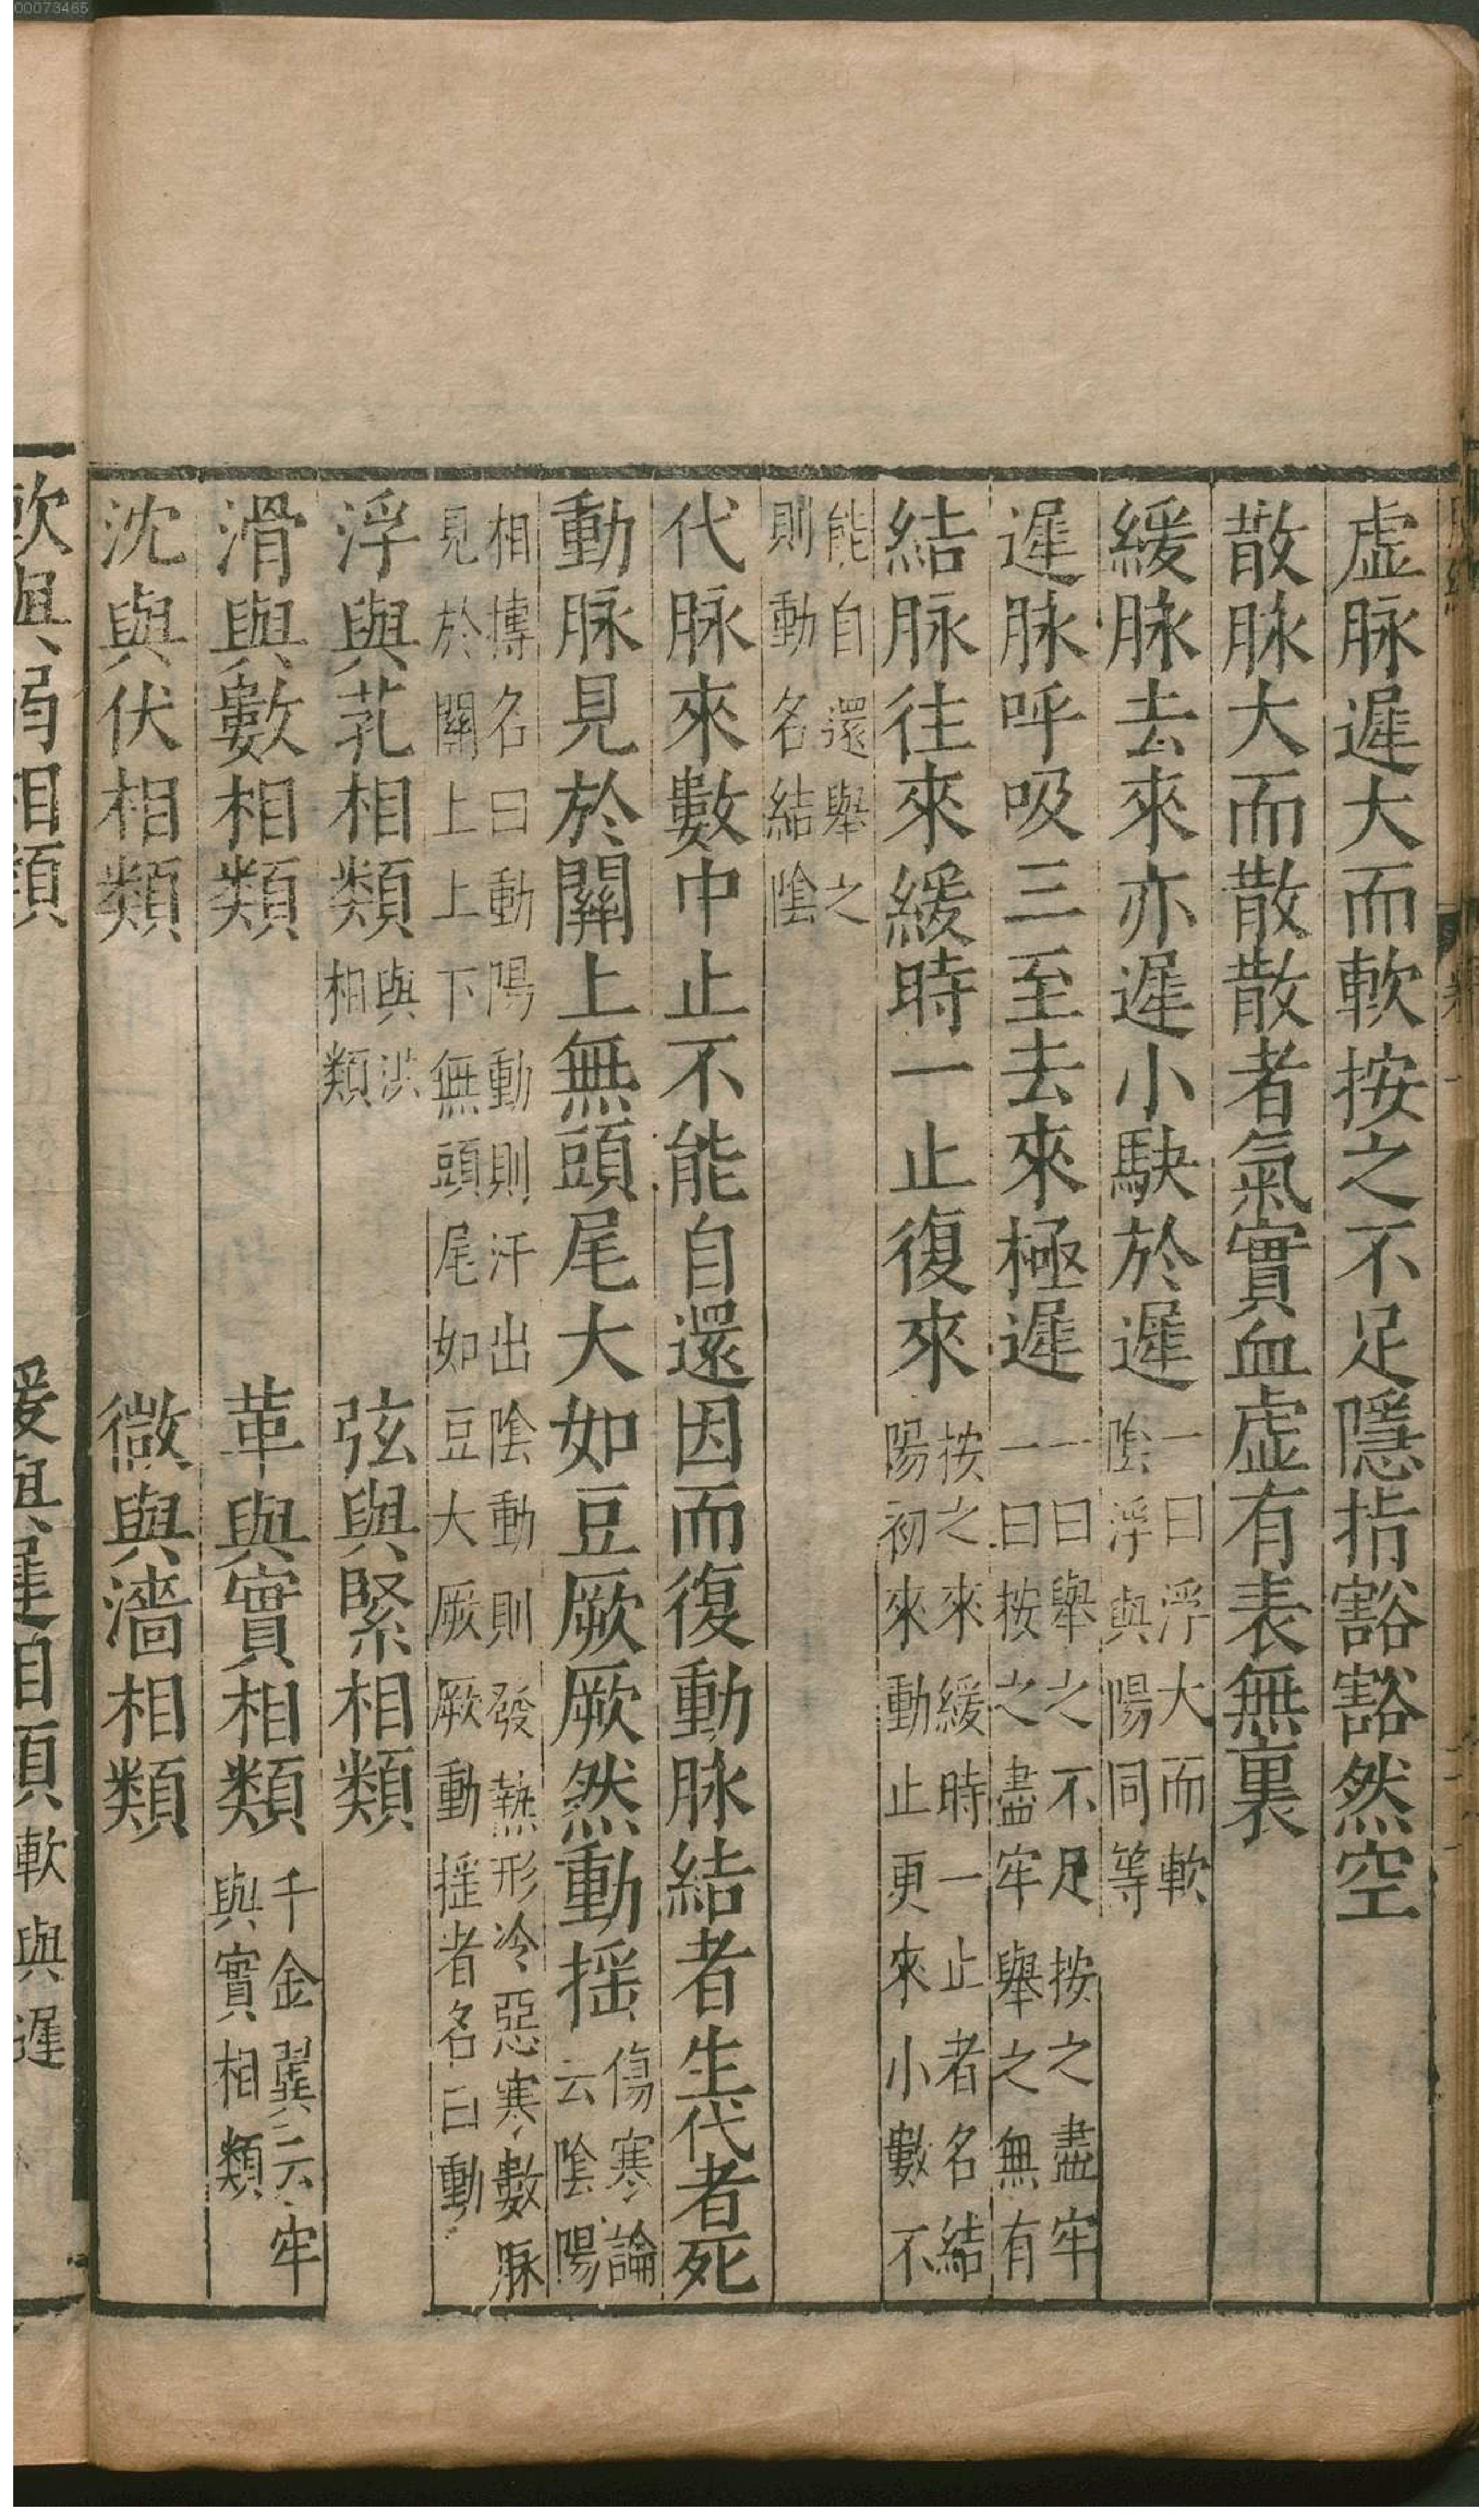 00073465
虛脉遲大而軟按之不足隱指豁豁然空
散脉大而散散者氣實血虛有表無裏
緩脉去來亦遲小駃於遲一曰浮大而軟
陰浮與陽同等
遲脉呼吸三至去來極遲一曰舉之不足按之盡牢
一曰按之盡牢舉之無有
結脉往來緩時一止復來按之來緩時一止者名結
陽初來動止更來小數不
能自還舉之
則動名結陰
代脉來數中止不能自還因而復動脉結者生代者死
動脉見於關上無頭尾大如豆厥厥然動搖傷寒論
云陰陽
相摶名曰動陽動則汗出陰動則發熱形冷惡寒數脉
見於關上上下無頭尾如豆大厥厥動揺者名曰動
浮與芤相類與洪
相類 弦與緊相類
滑與數相類 革與實相類千金翼云牢
與實相類
沈與伏相類 微與濇相類
軟與弱相類 緩與遲相類軟與遲